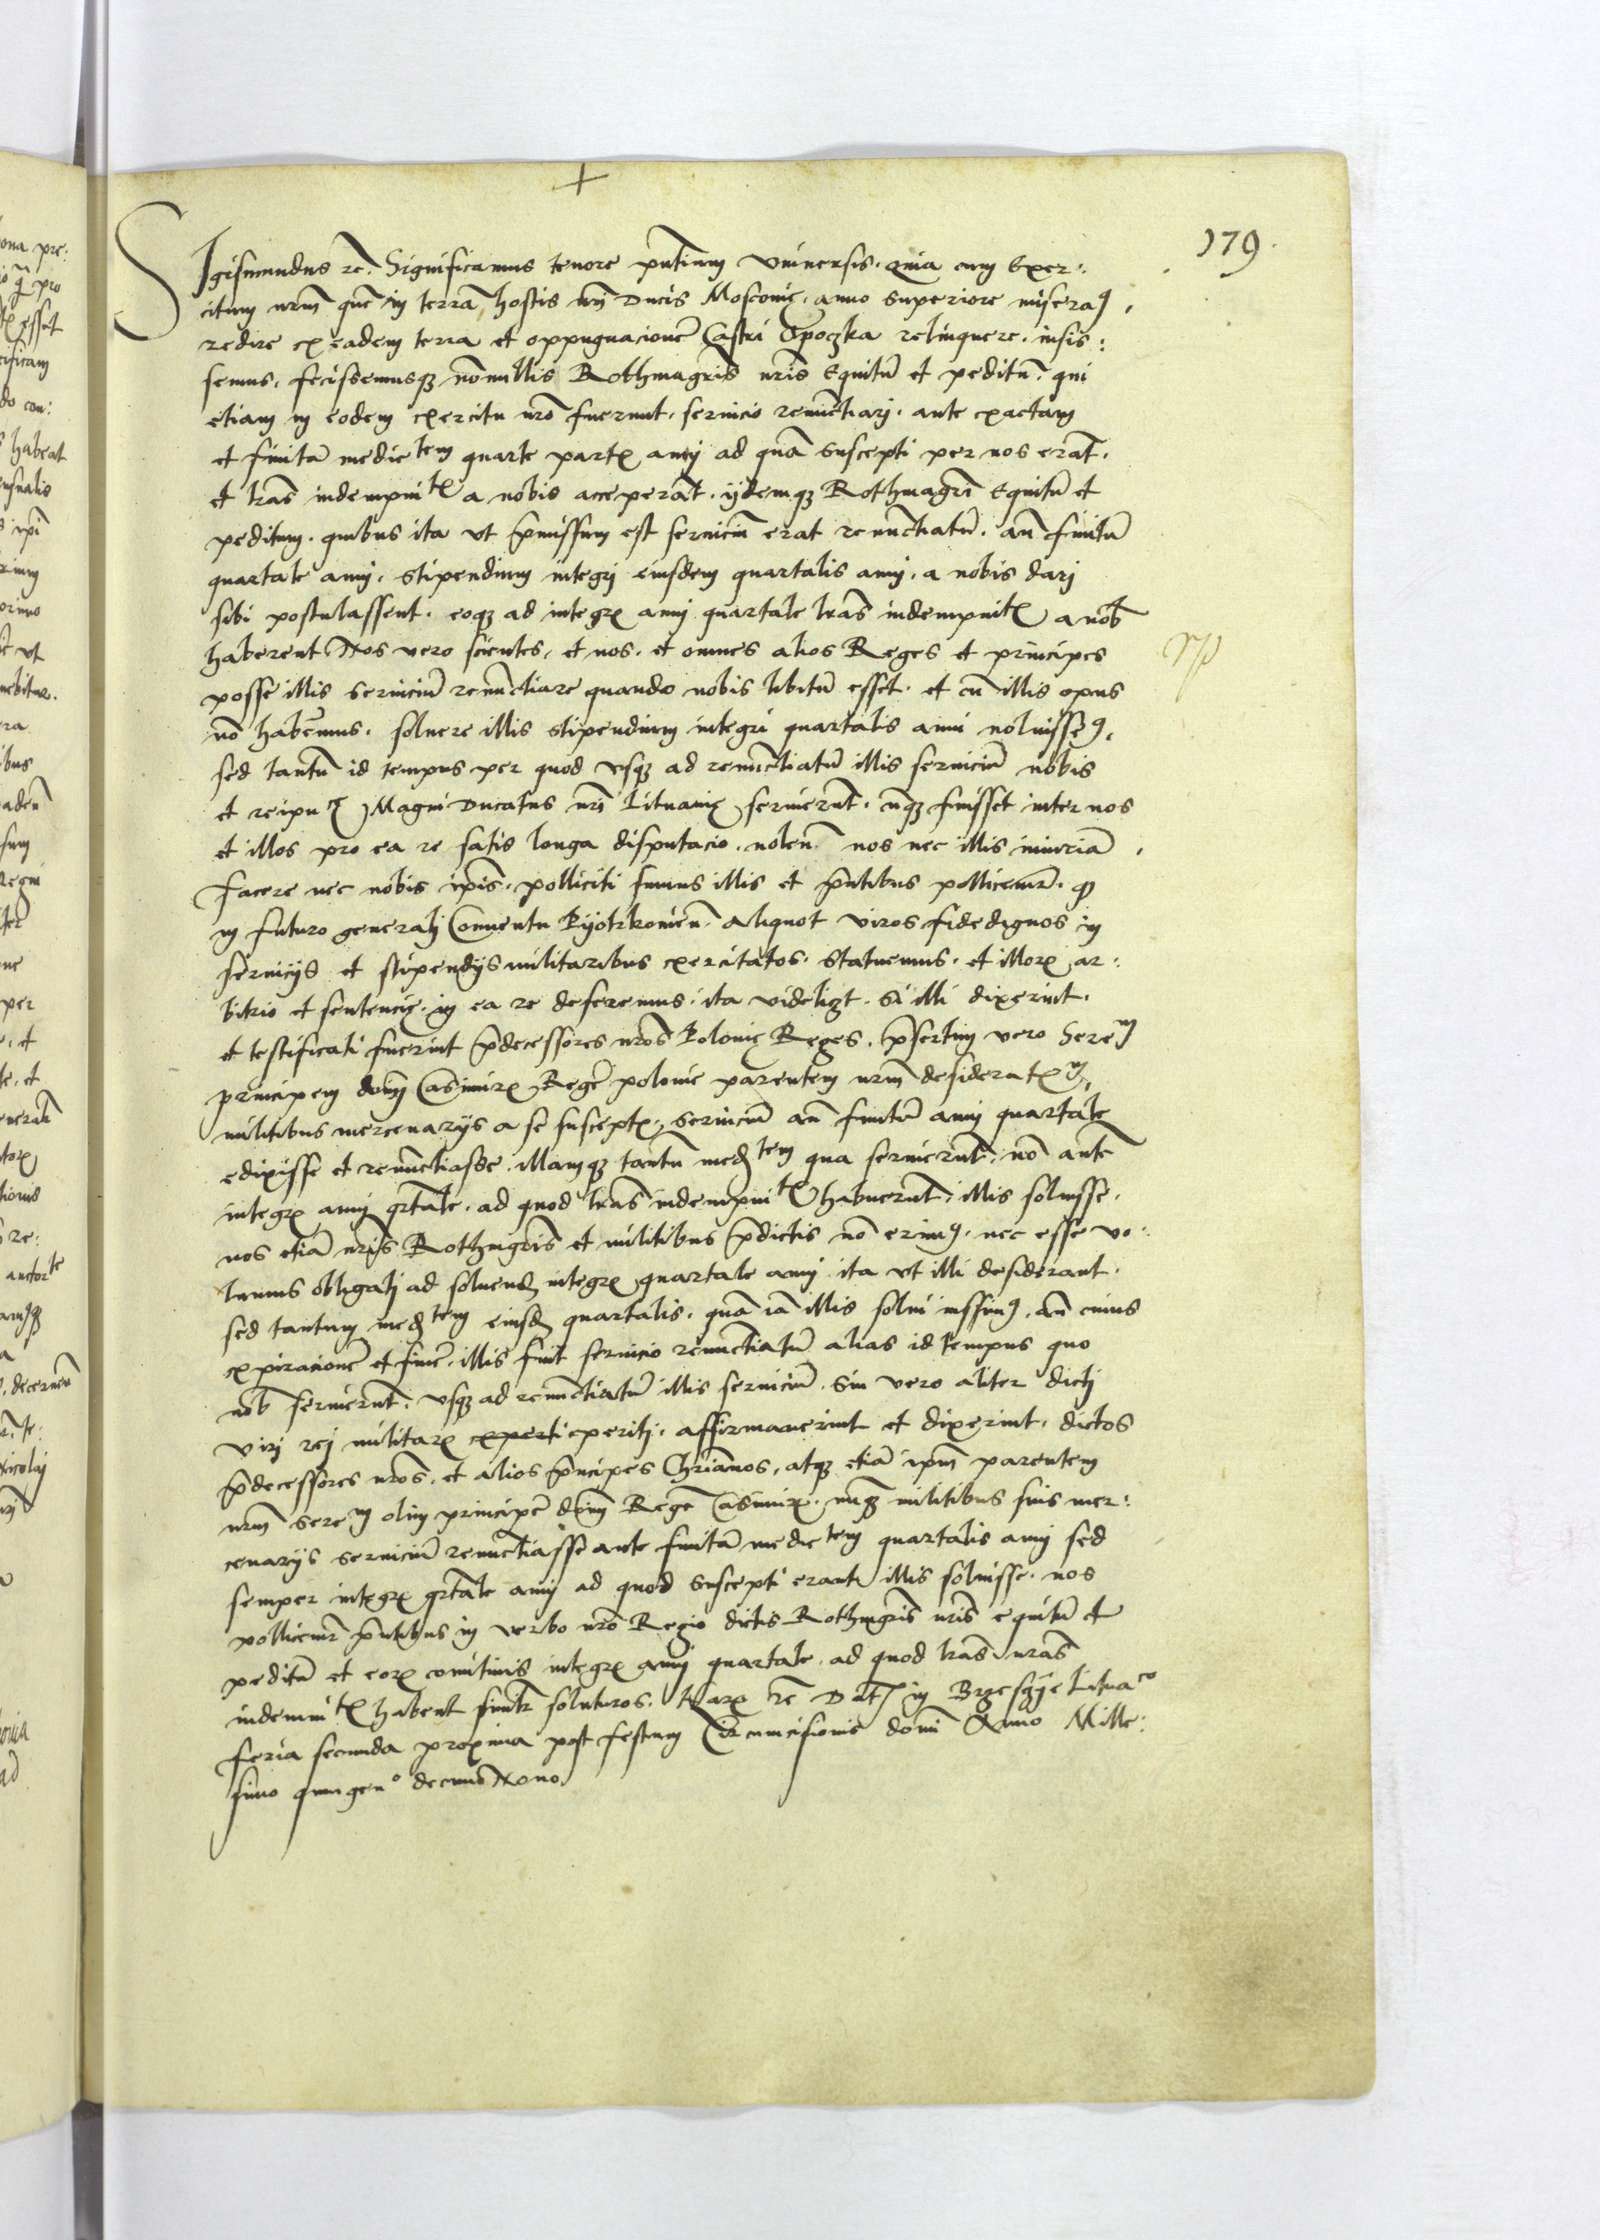 179.
Sigismundus rc. Significamus tenore pn̄tium Vniuersis. quia cum Exer:
citum nr̄m quē in terrā hostis nr̄i Ducis Moscouię. anno superiore miseraꝰ.
redire ex eadem terra et oppugnacionē Castri Opoczka relinquere. iusis:
semus. fecissemusqꝫ nōnullis Rothmagr̄is nr̄is Equitū et peditū. qui
etiam in eodem exercitu nr̄o fuerunt. seruicio renūctiarj. ante exactam
et finitā medietem quarte partꝭ annj ad quā suscepti per nos erāt.
et lr̄as indempnitꝭ a nobis acceperāt. ijdemqꝫ Rothmagr̄i Equitū et
peditum. quibus ita vt p̄missum est seruiciū erat renūctiatū. an̄ finitū
quartale annj. stipendium integrj eiusdem quartalis annj. a nobis darj
sibi postulassent. eoqꝫ ad integrꝝ annj quartale lr̄as indempnitꝭ a nob̄
haberent Nos vero scientes, et nos. et omnes alios Reges et principes
posse illis seruiciū renūctiare quando nobis libitū esset. et cū illis opus
nō habem̄us. soluere illis stipendium integri quartalis anni noluisseꝰ.
sed tantū id tempus per quod vsqꝫ ad renūctiatū illis seruiciū nobis
et reipuce Magni Ducatus nr̄i Lituanię seruierūt. vn̄qꝫ fuisset inter nos
et illos pro ea re satis longa disputacio. nolen̄. nos nec illis iniuriā.
facere nec nobis ip̄is. polliciti sumus illis et p̄ntibus pollicemr̄. ꝙ
in futuro generalj Conuentu Pijotrkouien̄. aliquot viros fidedignos in
seruicijs et stipendijs militaribus exercitatos. statuemus. et illorꝝ ar:
bitrio et sentencię. in ea re deferemus. ita videliꝫt. Si illi dixerint.
et testificati fuerint p̄decessores nr̄os Polonię Reges. p̄sertim vero Serem
principem dn̄m Casimirꝝ Regē polonie parentem nr̄m desideratꝝm,
militibus mercenarijs a se susceptꝭ, seruiciū an̄ finitū annj quartale
edixisse et renūctiasse. illamqꝫ tantū medtem qua seruierūt. nō aute
integrꝝ annj qr̄tale. ad quod lr̄as indempnitꝭ habuerūt. illis soluisse.
nos etiā nr̄is Rothmgr̄is et militibus p̄dictis nō erimꝰ. nec esse vo:
lumus obligatj ad soluendꝭ integrꝝ quartale annj ita vt illi desiderant.
sed tantum medtem eiusdꝭ quartalis. quā iā illis solui iussimꝰ. an̄ cuius
expiracionē et finē. illis fuit seruicio renūctiatū alias id tempus quo
nob̄ seruierūt. vsqꝫ ad renūctiatū illis seruiciū. Sin vero aliter dictj
virj rej militarꝭ experti peritj. affirmauerint et dixerint. dictos
p̄decessores nr̄os. et alios p̄ncipes Chr̄ianos, atqꝫ etiā ip̄m parentem
nr̄m Serem olim principē dn̄m Regē Casimirꝝ. nūqꝫ militibus suis mer:
cenarijs seruiciū renūctiasse ante finitā medietem quartalis annj sed
semper integrꝝ qr̄tale annj ad quod suscepti erant illis soluisse. nos
pollicemr̄ p̄ntibus in verbo nr̄o Regio dictis Rothmgr̄is nr̄is equitū et
peditū et eorꝝ comitiuis integrꝝ annj quartale. ad quod lr̄as nr̄as
indemnitꝭ habent simlr̄ soluturos. harꝝ rc Datꝭ in Brzesczje Lituaco
feria secunda proxima post festum Circumcisionis domī Anno Mille:
simo quingeno decimo Nono